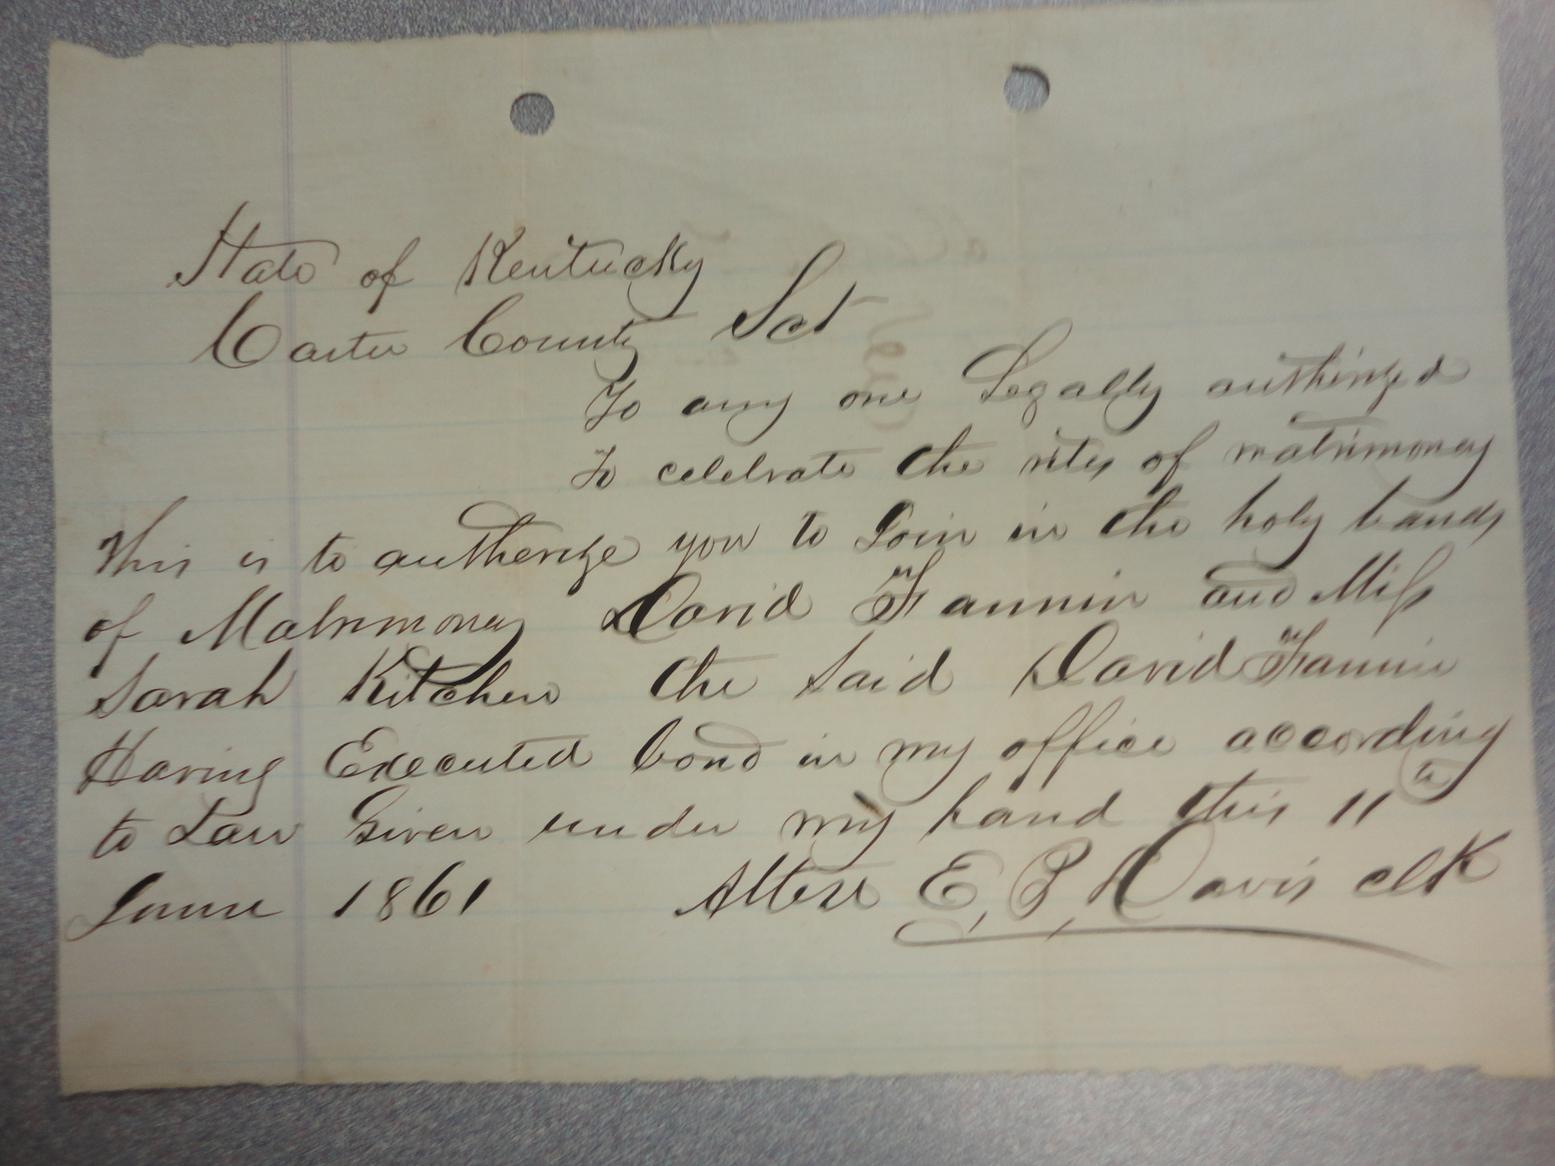 State of Kentucky
Carter County Sct
To any one Legally authirized
to celebrate the rites of matrimoney
This is to autherize you to Join in the holy bands
of Matrimoney David Fannin and Miss
Sarah Kitchen the said David Fannin
Having Executed bond in my office according
to Law Given under my hand this 11th
June 1861 Attest E, P, Davis clk